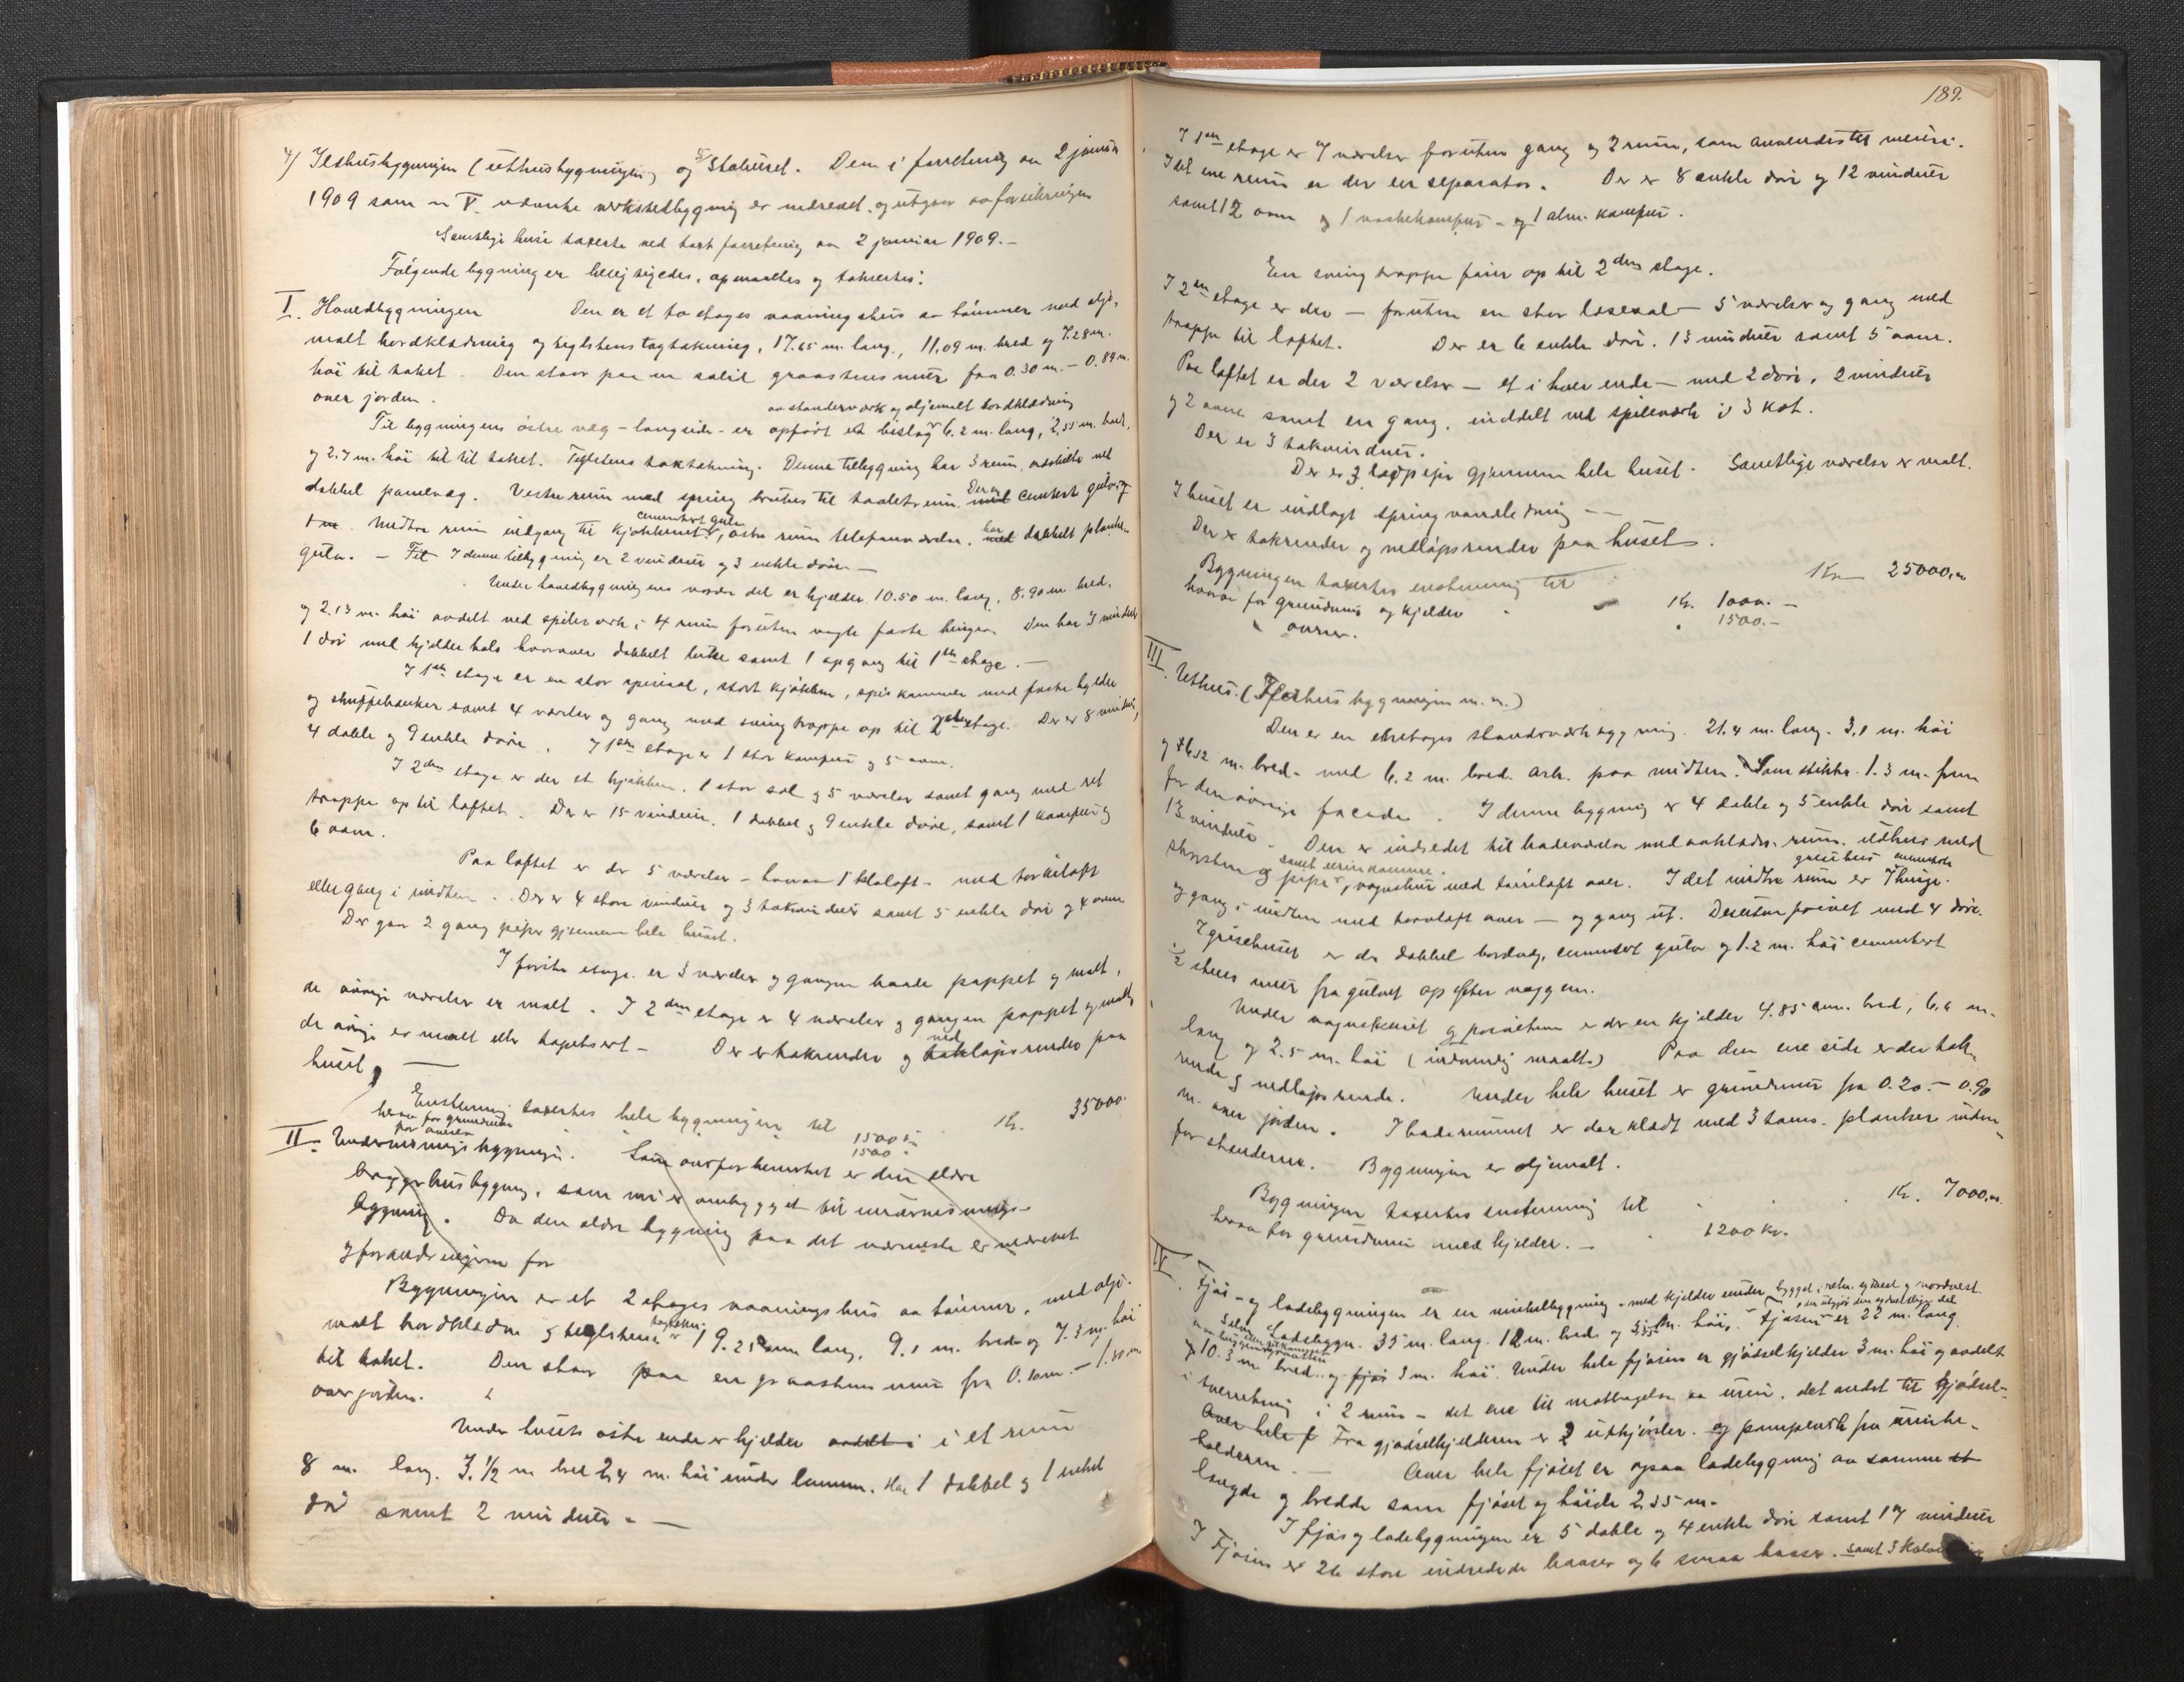 4) Ildhusbygningen (uthusbygningen) og 5) Stabburet. Den i forretning av 2 januar
1909 som no V nævnte verkstedbygning er nedrevet og utgaar av forsikringen
Samtlige huse taxertes ved takst forretning av 2 januar 1909.-
Følgende bygninger besigtigedes, opmaaltes og takseredes:
I. Hovedbygningen Den er et to etages vaaningshus av tømmer med olje-
malt bordklædning og teglstens tagtækning, 17.65 m. lang, 11,09 m. bred og 7.28 m.
høi til taket. Den staar paa en solid graastensmur fra 0.30 m. - 0.84 m.
over jorden.
av standerværk og oljemalt bordklædning
Til bygningens østre væg - langside - er opført et bislag 6.2 m. lang, 2,55 m. bred,
og 2.7 m. høi til til taket. Teglstens taktækning. Denne tilbygning har 3 rum, adskilte ved
dobbel panelvæg. Vestre rum med spring brukes til toiletrum. Der er med cementert gulv og
1 m. Midtre rum indgang til kjøkkenet cementert gulv, østre rum telefonværelse. har med dobbelt planke-
gulv. - Til I denne tilbygning er 2 vinduer og 3 enkle døre. -
Under hovedbygningens nordre del er kjelder 10.50 m. lang, 8.90 m bred,
og 2.13 m. høi avdelt ved spilerverk i 4 rum foruten nogle faste binger. Den har 3 vinduer
1 dør med kjelderhals hvorover dobbelt luke samt 1 opgang til 1ste etage. -
I 1ste etage er en stor spisesal, stort kjøkken, spiskammer med faste hylder
og skuffebænker samt 4 værelser og gang med svingtrappe op til 2den etage. Der er 8 vinduer,
4 doble og 9 enkle døre. I 1ste etage er 1 stor komfur og 5 ovne.
I 2den etage er der et kjøkken, 1 stor sal og 5 værelser samt gang med ret
trappe op til loftet. Der er 15 vinduer, 1 dobbel og 9 enkle døre, samt 1 komfur og
6 ovne.
Paa loftet er der 5 værelser - hvorav 1 klæloft - med tørkeloft
eller gang i midten. Der er 4 store vinduer og 3 takvinduer samt 5 enkle døre og 4 ovne
Der gaar 2 gang piper gjennem hele huset.
I første etage er 3 værelser og gangen baade pappet og malt,
de øvrige værelser er malt. I 2den etage er 4 værelser og gangen pappet og malt,
de øvrige er malt eller tapetsert - Der er takrender og ned takløpsrender paa
huset. -
Enstemmig taxertes hele bygningen til Kr. 35000.
herav for grundmur 1500 kr
for ovner 1500 "
II. Undervisningsbygningen. Som ovsforbemerket er den ældre
bryggerhusbygning, som nu er ombygget til undervisnings-
bygning. Da den ældre bygning paa det nærmeste er nedrevet
og forandringen for
Bygningen er et 2 etages vaaningshus av tømmer, med olje-
malt bordklædn og teglstens tagtækn. 19.25 m lang, 9.1 m. bred og 7.3 m. høi
til taket. Den staar paa en graastens mur fra 0.10 m. - 1.50 m
over jorden.
Under husets østre ende er kjelder avdelt i i et rum
8 m. lang. 3.1/2 m bred 2,4 m. høi under lemmen. Har 1 dobbel og 1 enkel
dør samt 2 vinduer. -
189.
I 1ste etage er 7 værelser foruten gang og 2 rum, som anvendes til meieri.
I det ene rum er der en separator. Der er 8 enkle døre og 12 vinduer
samt 12 ovne og 1 vaskekomfur - og 1 alm. komfur.
En svingtrappe fører op til 2den etage.
I 2den etage er der - foruten en stor læsesal - 5 værelser og gang med
trappe til loftet. Der er 6 enkle døre, 13 vinduer samt 5 ovne.
Paa loftet er der 2 værelser - et i hver ende - med 2 døre, 2 vinduer
og 2 ovne samt en gang, inddelt med spileverk i 3 kot.
Der er 3 takvinduer.
Der er 3 løppiper gjennem hele huset. Samtlige værelser er malt.
I huset er indlagt springvandledning - -
Der er takrender og nedløpsrender paa huset.
Bygningen taxertes enstemmig til Kr. 25000,00
hvorav for grundmur og kjelder Kr. 1000.-
" ovner. " 1500.-
III. Uthus. (Ildhusbygningen m. m.)
Den er en etetages standerværkbygning. 21.4 m. lang. 3,1 m. høi
og 6.12 m. bred. med 6.2 m. bred. ark. paa midten. Som stikker 1.3 m. frem
for den øvrige facade. I denne bygning er 4 doble og 5 enkle døre samt
13 vinduer. Den er indredet til badeværelse med avklædn. rum. ildhus med
skorsten og pipe, samt urinkammer. vognskur med tørreloft over. I det midtre rum grisehus er 7 binge. cementerte
og gang i midten med torvloft over - og gang ut. Desuten privet med 4 døre.
I grisehuset er der dobbel bordvæg, cementert gulv og 1.2 m. høi cementert
1/2 stens mur fra gulvet op efter væggene.
Under vognskuret og privetene er der en kjelder 4.85 m. bred, 6,6 m.
lang og 2.5 m. høi (indvendig maalt.) Paa den ene side er der tak-
rende og nedløpsrende. Under hele huset er grundmur fra 0.20. - 0.90
m. over jorden. I baderummet er der klædt med 3 toms. planker inden-
for standerne. - Bygningen er oljemalt.
Bygningen taxertes enstemmig til Kr. 7000,00
herav for grundmur med kjelder. - 1200 kr.
IV. Fjøs - og ladebygningen er en vinkelbygning - med kjelder under - bygget i retn. sydvest og nordvest.
Ladebygn. 35 m. lang. 12 m. bred og 5,35 m. høi, Fjøsen som utgjør den sydvestlige del er 22 m. lang
og 10.3 m. bred. og fjøs 3 m. høi. Under hele fjøsen er gjødselkjelder 3 m. høi og avdelt
i tverretning i 2 rum - det ene til mottagelse av urin, det andet til gjødsel-
Over hele f Fra gjødselkjelderen er 2 utkjørsler. og pumpeverk fra urinbe-
holderen. - Over hele fjøset er ogsaa ladebygning av samme st
længde og bredde som fjøset og høide 2,55 m.
I fjøs og ladebygningen er 5 doble og 4 enkle døre samt 17 vinduer
I Fjøsen er 26 store indredede baaser og 6 smaa baaser. samt 3